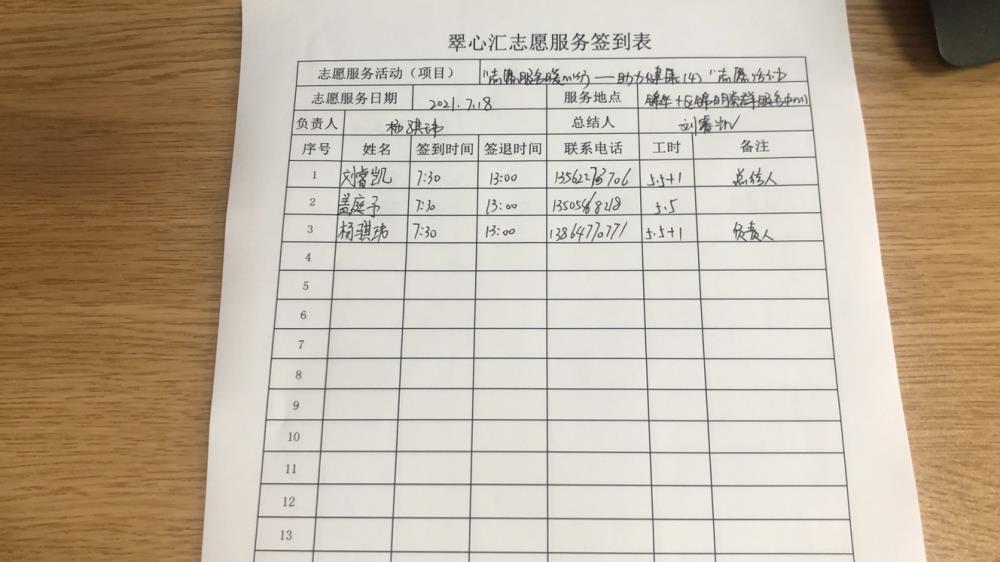 翠心汇志愿服务签到表
志愿服务活动（项目） "志愿服务暖 ——助力健康(4)"志愿活动
志愿服务日期 2021.7.18 服务地点
负责人 杨骐玮 总结人 刘睿凯
序号 姓名 签到时间 签退时间 联系电话 工时 备注
1 刘睿凯 7:30 13:00 13562273706 5.5+1 总结人
2 盖庭予 7:30 13:00 5.5
3 杨骐玮 7:30 13:00 13864770771 5.5+1 负责人
4
5
6
7
8
9
10
11
12
13